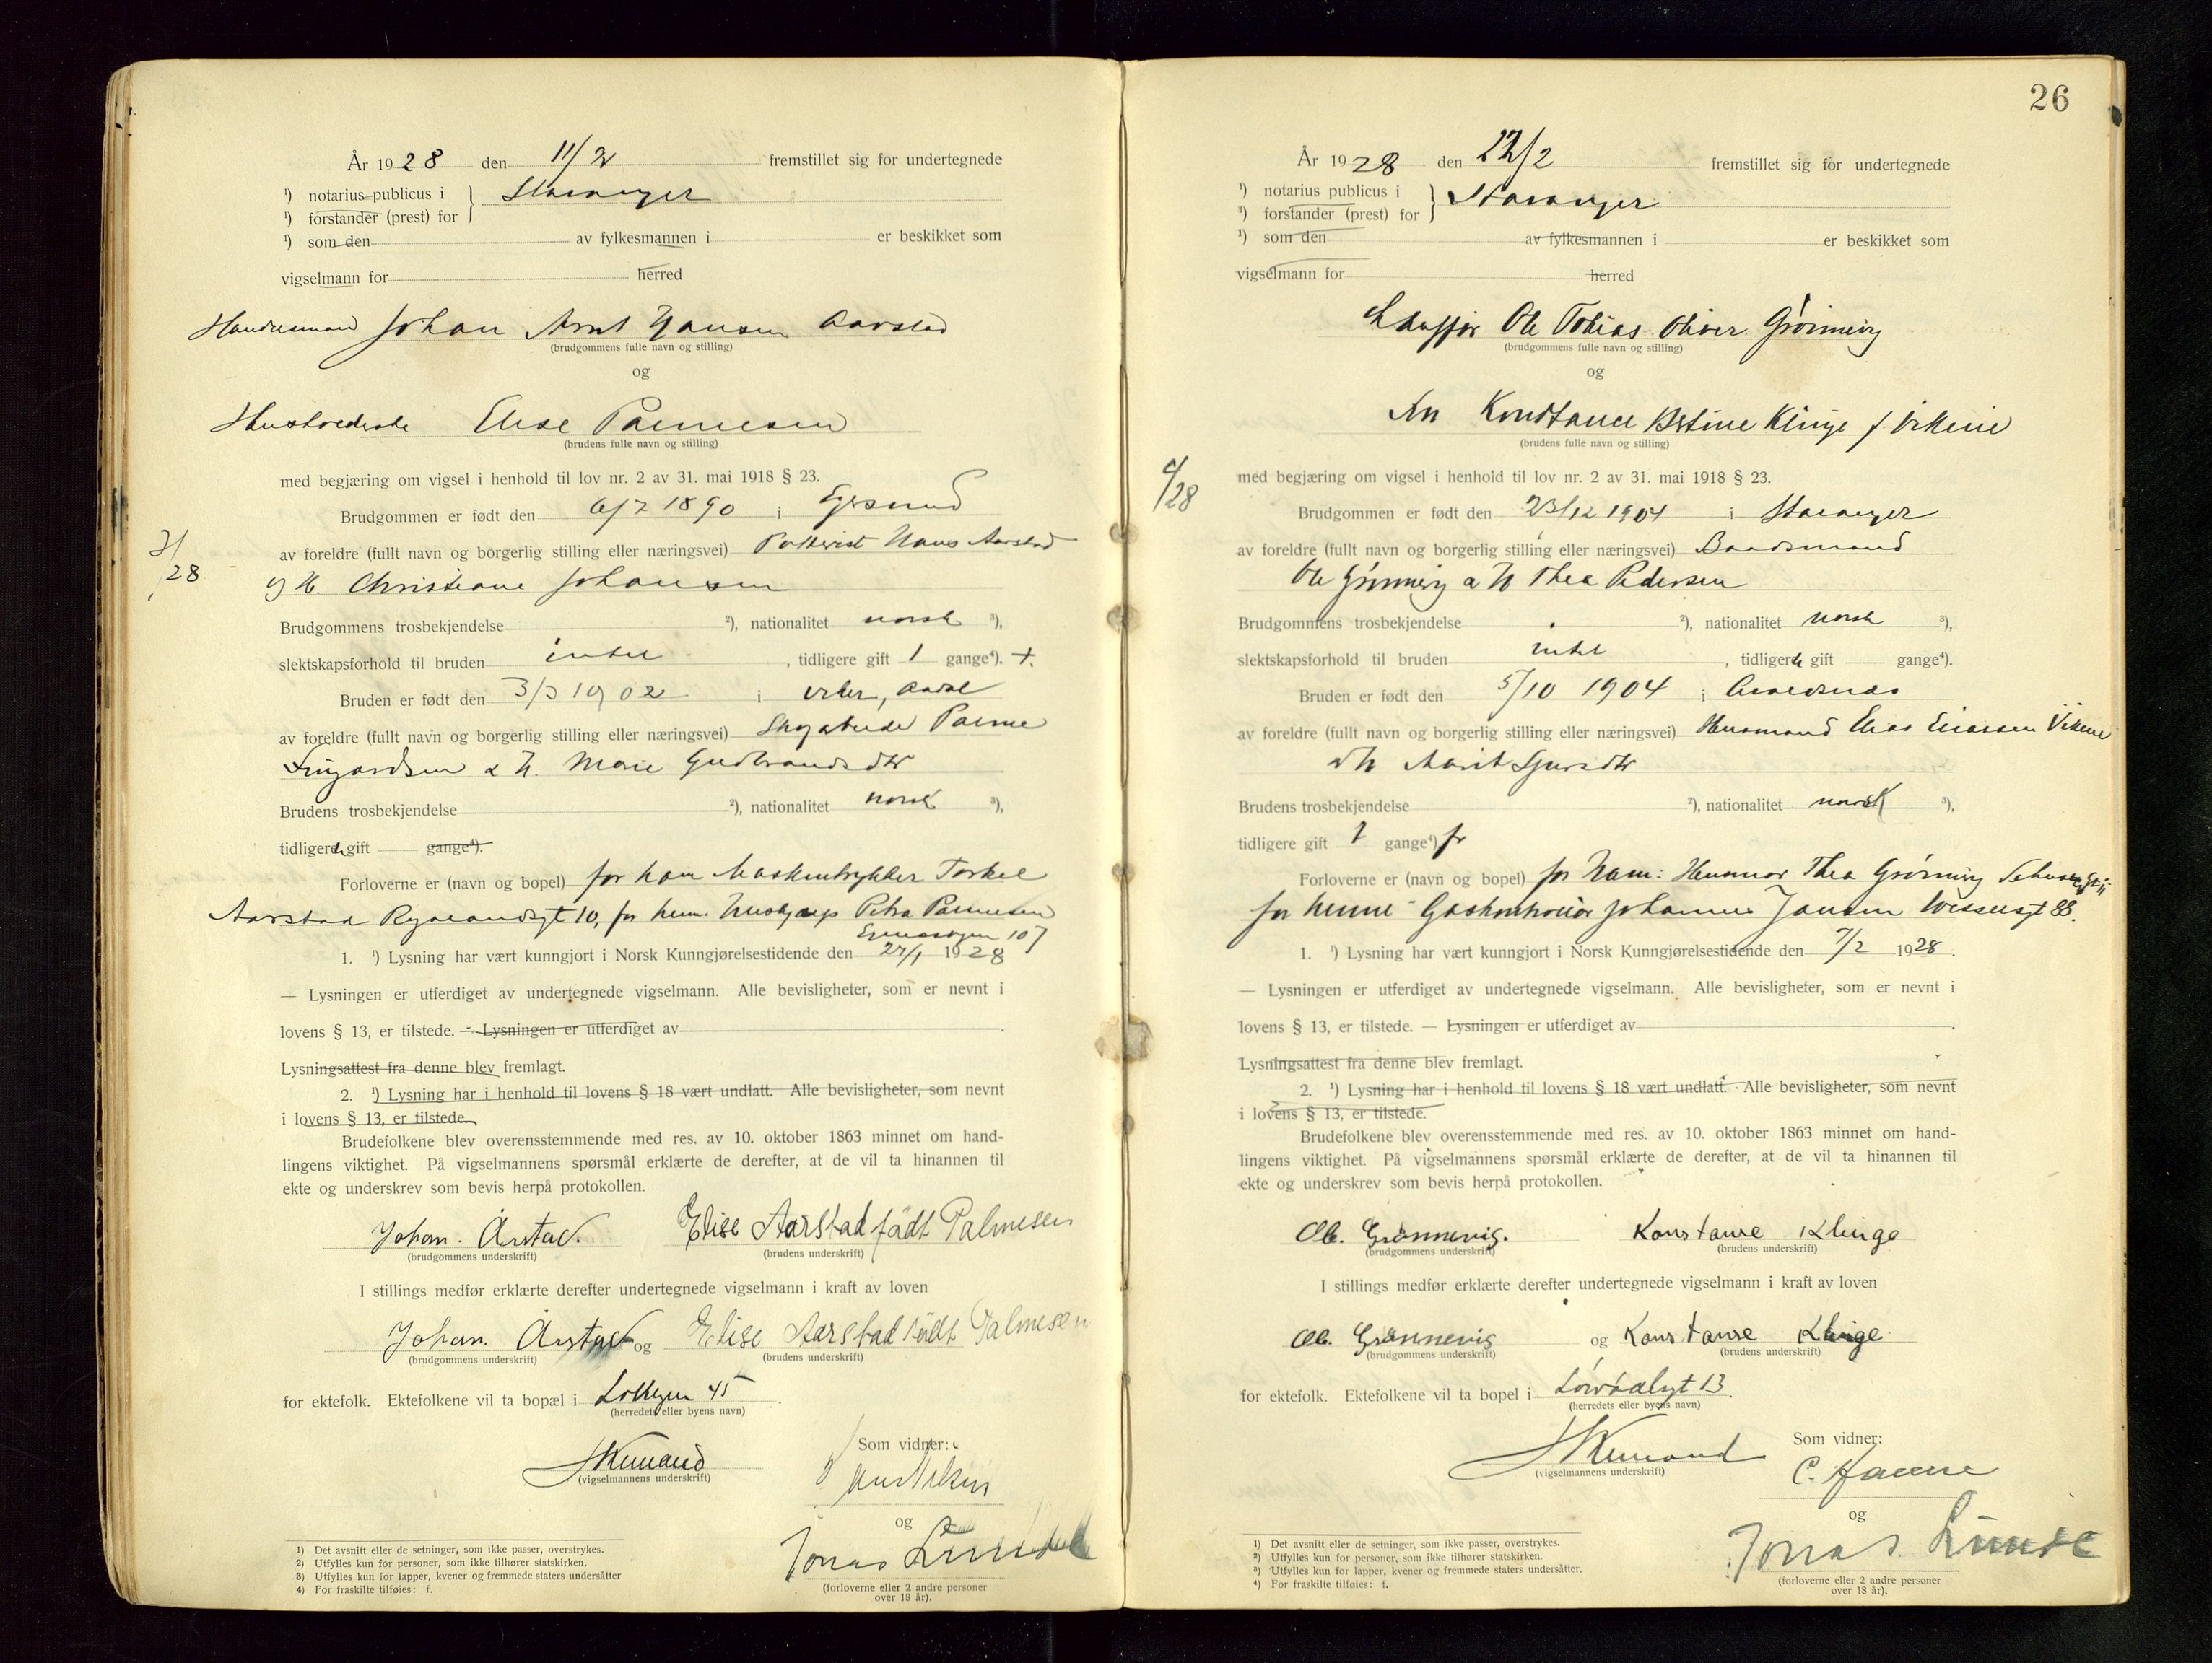 År 1928 den 11/2 fremstillet sig for undertegnede
¹) notarius publicus i
Stavanger
¹) forstander (prest) for
¹) som den av fylkesmannen i er beskikket som
vigselmann for herred
Johan Arnt Hansen Aarstad
(brudgommens fulle navn og stilling)
og
Elise Palmesen
(brudens fulle navn og stilling)
med begjæring om vigsel i henhold til lov nr. 2 av 31. mai 1918 § 23.
Brudgommen er født den 6/7 1890 i Egersund
av foreldre (fullt navn og borgerlig stilling eller næringsvei) Hans Aarstad
28
og H. Christiane Johansen
Brudgommens trosbekjendelse ²), nationalitet norsk ³),
slektskapsforhold til bruden intet, tidligere gift 1 gange⁴). +.
Bruden er født den 3/3 1902 i Aadal
av foreldre (fullt navn og borgerlig stilling eller næringsvei) Palme
Marie Gudbrandsdtr
Brudens trosbekjendelse ²), nationalitet norsk ³),
tidligere gift gange⁴).
Forloverne er (navn og bopel) for ham Maskintrykker Torkel
Aarstad 10, for henne Petra Palmesen
107
1. ¹) Lysning har vært kunngjort i Norsk Kunngjørelsestidende den 27/1 1928
— Lysningen er utferdiget av undertegnede vigselmann. Alle bevisligheter, som er nevnt i
lovens § 13, er tilstede. — Lysningen er utferdiget av
Lysningsattest fra denne blev fremlagt.
2. ¹) Lysning har i henhold til lovens § 18 vært undlatt. Alle bevisligheter, som nevnt
i lovens § 13, er tilstede.
Brudefolkene blev overensstemmende med res. av 10. oktober 1863 minnet om hand-
lingens viktighet. På vigselmannens spørsmål erklærte de derefter, at de vil ta hinannen til
ekte og underskrev som bevis herpå protokollen.
Johan. Årstad. Elise Aarstad född Palmesen
(brudgommens underskrift) (brudens underskrift)
I stillings medfør erklærte derefter undertegnede vigselmann i kraft av loven
Johan. Årstad og Elise Aarstad född Palmesen
(brudgommens underskrift) (brudens underskrift)
for ektefolk. Ektefolkene vil ta bopæl i 45
(herredets eller byens navn)
Som vidner:
(vigselmannens underskrift)
og
Jonas Lunde
(forloverne eller 2 andre personer
over 18 år).
1) Det avsnitt eller de setninger, som ikke passer, overstrykes.
2) Utfylles kun for personer, som ikke tilhører statskirken.
3) Utfylles kun for lapper, kvener og fremmede staters undersåtter
4) For fraskilte tilføies: f.
26
År 1928 den 22/2 fremstillet sig for undertegnede
¹) notarius publicus i
Stavanger
¹) forstander (prest) for
¹) som den av fylkesmannen i er beskikket som
vigselmann for herred
Chauffør Ole Tobias Oliver Grønnevig
(brudgommens fulle navn og stilling)
og
Konstance Bertine Klinge f Vikene
(brudens fulle navn og stilling)
med begjæring om vigsel i henhold til lov nr. 2 av 31. mai 1918 § 23.
28
Brudgommen er født den 23/12 1904 i Stavanger
av foreldre (fullt navn og borgerlig stilling eller næringsvei) Baadsmand
Ole Grønnevig & H Thea Pedersen
Brudgommens trosbekjendelse ²), nationalitet norsk ³),
slektskapsforhold til bruden intet, tidligere gift gange⁴).
Bruden er født den 5/10 1904 i
av foreldre (fullt navn og borgerlig stilling eller næringsvei) Elias Eliassen Vikene
Marit Sjursdtr
Brudens trosbekjendelse ²), nationalitet norsk ³),
tidligere gift 1 gange⁴) fr
Forloverne er (navn og bopel) for ham: Thea Grønnevig
for henne Gaskontrollør Johannes Jansen Wesselsgt 88.
1. ¹) Lysning har vært kunngjort i Norsk Kunngjørelsestidende den 7/2 1928.
— Lysningen er utferdiget av undertegnede vigselmann. Alle bevisligheter, som er nevnt i
lovens § 13, er tilstede. — Lysningen er utferdiget av
Lysningsattest fra denne blev fremlagt.
2. ¹) Lysning har i henhold til lovens § 18 vært undlatt. Alle bevisligheter, som nevnt
i lovens § 13, er tilstede.
Brudefolkene blev overensstemmende med res. av 10. oktober 1863 minnet om hand-
lingens viktighet. På vigselmannens spørsmål erklærte de derefter, at de vil ta hinannen til
ekte og underskrev som bevis herpå protokollen.
Ole. Grønnevig. Konstanse Klinge
(brudgommens underskrift) (brudens underskrift)
I stillings medfør erklærte derefter undertegnede vigselmann i kraft av loven
Ole. Grønnevig og Konstanse Klinge
(brudgommens underskrift) (brudens underskrift)
for ektefolk. Ektefolkene vil ta bopel i 13
(herredets eller byens navn)
Som vidner:
(vigselmannens underskrift)
og
Jonas Lunde
(forloverne eller 2 andre personer
over 18 år).
1) Det avsnitt eller de setninger, som ikke passer, overstrykes.
2) Utfylles kun for personer, som ikke tilhører statskirken.
3) Utfylles kun for lapper, kvener og fremmede staters undersåtter.
4) For fraskilte tilføies: f.